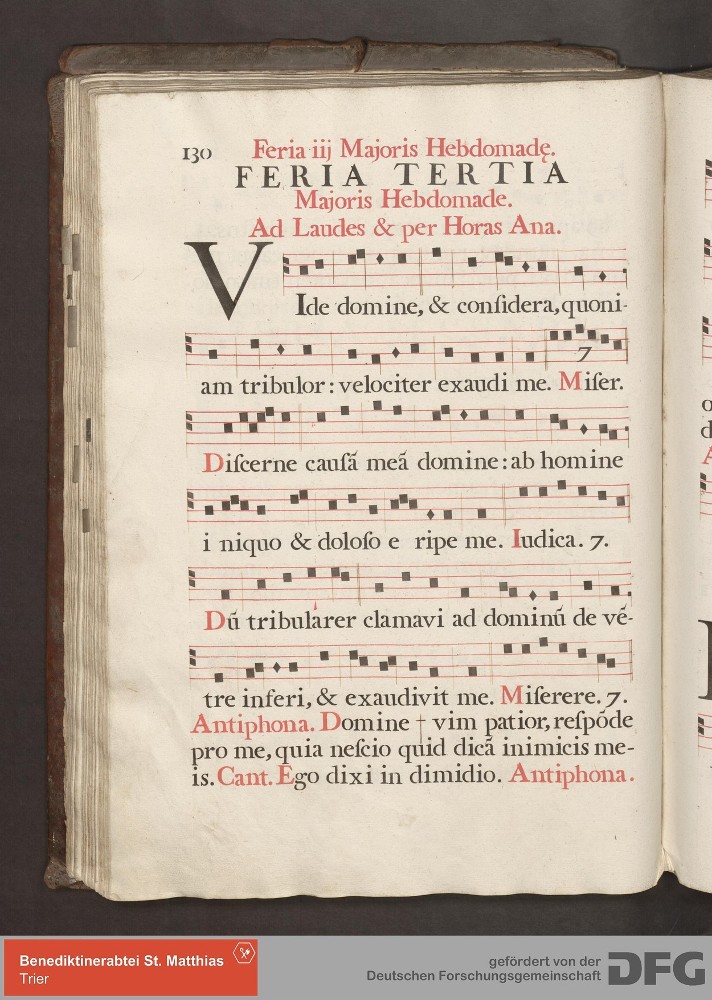 130 Feria iij Majoris Hebdomadę.
FERIA TERTIA
Majoris Hebdomade.
Ad Laudes & per Horas Ana.
VIde domine, & conſidera, quoni-
7
am tribulor: velociter exaudi me. Miſer.
Diſcerne cauſã meã domine: ab homine
i niquo & doloſo e ripe me. Iudica. 7.
Dũ tribularer clamavi ad dominũ de vẽ-
tre inferi, & exaudivit me. Miſerere. 7.
Antiphona. Domine † vim patior, reſpõde
pro me, quia neſcio quid dicã inimicis me-
is. Cant. Ego dixi in dimidio. Antiphona.
Benediktinerabtei St. Matthias
Trier
gefördert von der
Deutschen Forschungsgemeinschaft
DFG